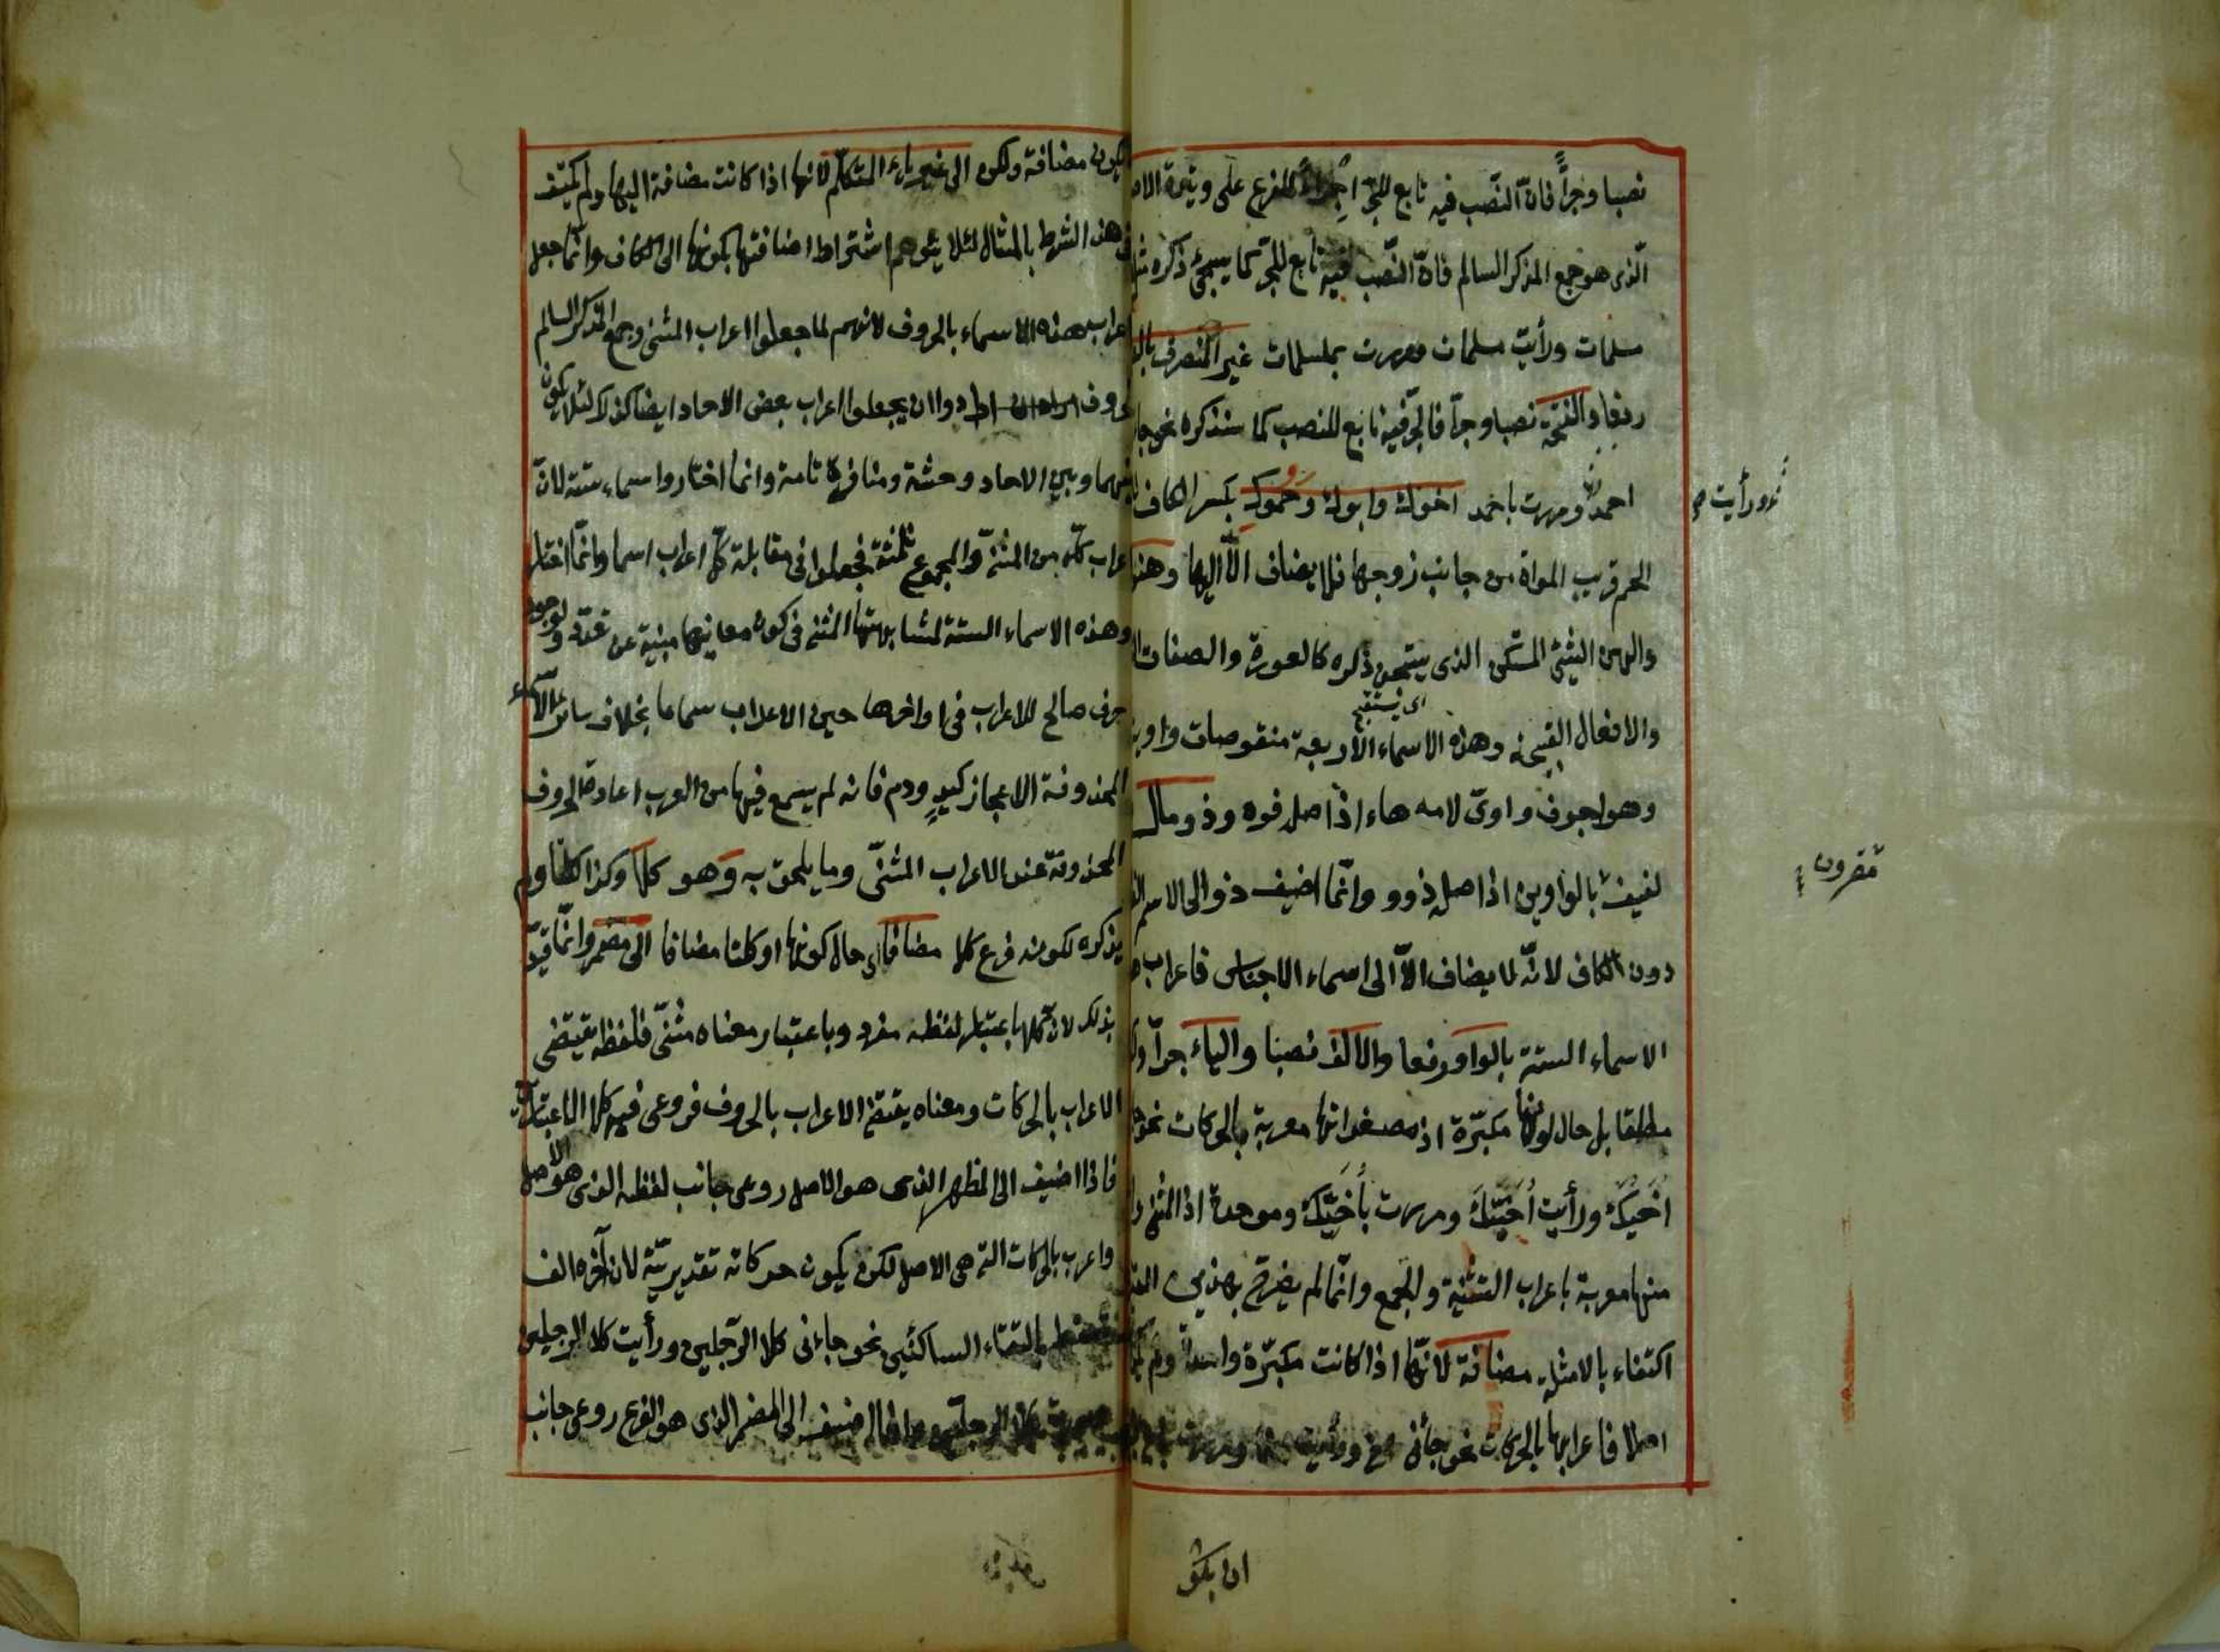 نصبا وجرّا فانّ النّصب فيه تابع للجرّ اجراءً للفرع على وتيرة الاصل
الّذى هو جمع المذكر السالم فانّ النّصب فيه تابع للجرّ كما سيجئ ذكره مثل
مسلمات ورأيت مسلمات ومررت بمسلمات غير المنصرف بالضمة
رفعا والفتحة نصبا وجرّا فالجرّ فيه تابع للنصب كما سنذكره نحو جاءنى
احمد ومررت باحمد اخوك وابوك وحموك بكسر الكاف
ورأيت
الحم قريب المرأة من جانب زوجها فلا يضاف الّا اليها وهنوك
والهن الشئ المستنكر الذى يستهجن ذكره كالعورة والصفات
اى يستقبح
والافعال القبيحة وهذه الاسماء الاربعة منقوصات واوية
وهو اجوف واوىّ لامه هاء اذ اصله فوه وذو مال
لفيف بالواوين اذ اصله ذوو وانّما اضيف ذو الى الاسم
مقرون
دون الكاف لانّه لا يضاف الّا الى اسماء الاجناس فاعراب
الاسماء الستة بالواو رفعا والالف نصبا والياء جرّا
مطلقا بل حال كونها مكبّرة اذ مصغراتها معربة بالحركات نحو
اُخَيّكَ ورأيت اُخَيّكَ ومررت باُخَيّكَ وموحدة اذ المثنى
منها معربة باعراب التثنية والجمع وانّما لم يصرّح بهذين
اكتفاء بالامثلة مضافة لانّها اذا كانت مكبّرة
اصلا فاعرابها بالحركات نحو جاءنى اخ ورأيت اخا ومررت باخ
ان يكون
يكون مضافة ولكن الى غير ياء المتكلّم لانها اذا كانت مضافة اليها ولم يكتف
فى هذا الشرط بالمثال لئلا يتوهم اشتراط اضافتها بكونها الى الكاف وانّما جعل
اعراب هذه الاسماء بالحروف لانهم لما جعلوا اعراب المثنى وجمع المذكر السالم
بالحروف ارادوا ان يجعلوا اعراب بعض الاحاد ايضا كذلك لئلا يكون
بينهما وبين الاحاد وحشة ومنافرة تامة وانما اختاروا اسماء ستة لانّ
اعراب كلّ من المثنّى والمجموع ثلثة فجعلوا فى مقابلة كلّ اعراب اسما وانّما اختاروا
هذه الاسماء الستة لمشابهتها المثنى فى كون معانيها مبنية عن تعدّد ولوجود
حرف صالح للاعراب فى اواخرها حين الاعراب سماعا بخلاف سائر الاسماء
المحذوفة الاعجاز كيدٍ ودم فانه لم يسمع فيها من العرب اعادة الحروف
المحذوفة عند الاعراب المثنّى وما يلحق به وهو كلا وكذا كلتا ولم
يذكره لكونه فرع كلا مضافا اى حال كونها او كلتا مضافا الى مضمر وانّما قيّد
بذلك لان كلا باعتبار لفظه مفرد وباعتبار معناه مثنّى فلفظه يقتضى
الاعراب بالحركات ومعناه يقتضى الاعراب بالحروف فروعى فيه كلا الاعتبارين
فاذا اضيف الى المظهر الذى هو الاصل روعى جانب لفظه الذى هو الاصل
واعرب بالحركات التى هى الاصل لكن يكون حركاته تقديريّة لان آخره الف
تسقط بالتقاء الساكنين نحو جاءنى كلا الرّجلين ورأيت كلا الرجلين
ومررت بكلا الرجلين واذا اضيف الى المضمر الذى هو الفرع روعى جانب